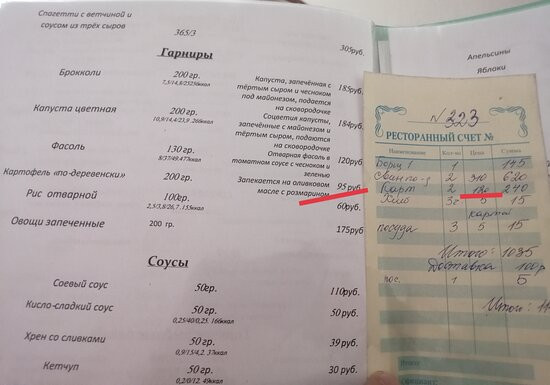 Спагетти с ветчиной и
соусом из трёх сыров
365/3
305руб.
Гарниры
Брокколи
200 гр.
Капуста, запечённая с
тёртым сыром и чесноком
под майонезом, подается
на сковородочке
185руб.
Капуста цветная
200 гр.
Соцветия капусты,
запечённые с майонезом и
тёртым сыром, подаются
на сковородочке
184руб.
Фасоль
130 гр.
8/37/49.477ккал
Отварная фасоль в
томатном соусе с чесноком и
зеленью
120руб
Картофель «по-деревенски»
200гр.
Запекается на оливковом
масле с розмарином
95 руб
Рис отварной
100гр.
2,5/3,8/26,7. 153ккал
60руб.
Овощи запеченные
200 гр.
175руб
Соусы
Соевый соус
50гр.
110руб.
Кисло-сладкий соус
50гр.
0,25/40/0.25. 166ккал
50 руб.
Хрен со сливками
30 гр.
0,9/15/4,2. 37ккал
39 руб.
Кетчуп
30 гр.
0,2/0/12. 49ккал
30 руб.
Апельсины
Яблоки
N 223
РЕСТОРАННЫЙ СЧЕТ №
Наименование Кол-во Цена Сумма
Борщ 1 1 145
2 310 620
Карт 2 120 240
Хлеб 3г 5 15
карта
посуда 3 5 15
Итого: 1035
Доставка 100р
пос. 1 5
Итого: